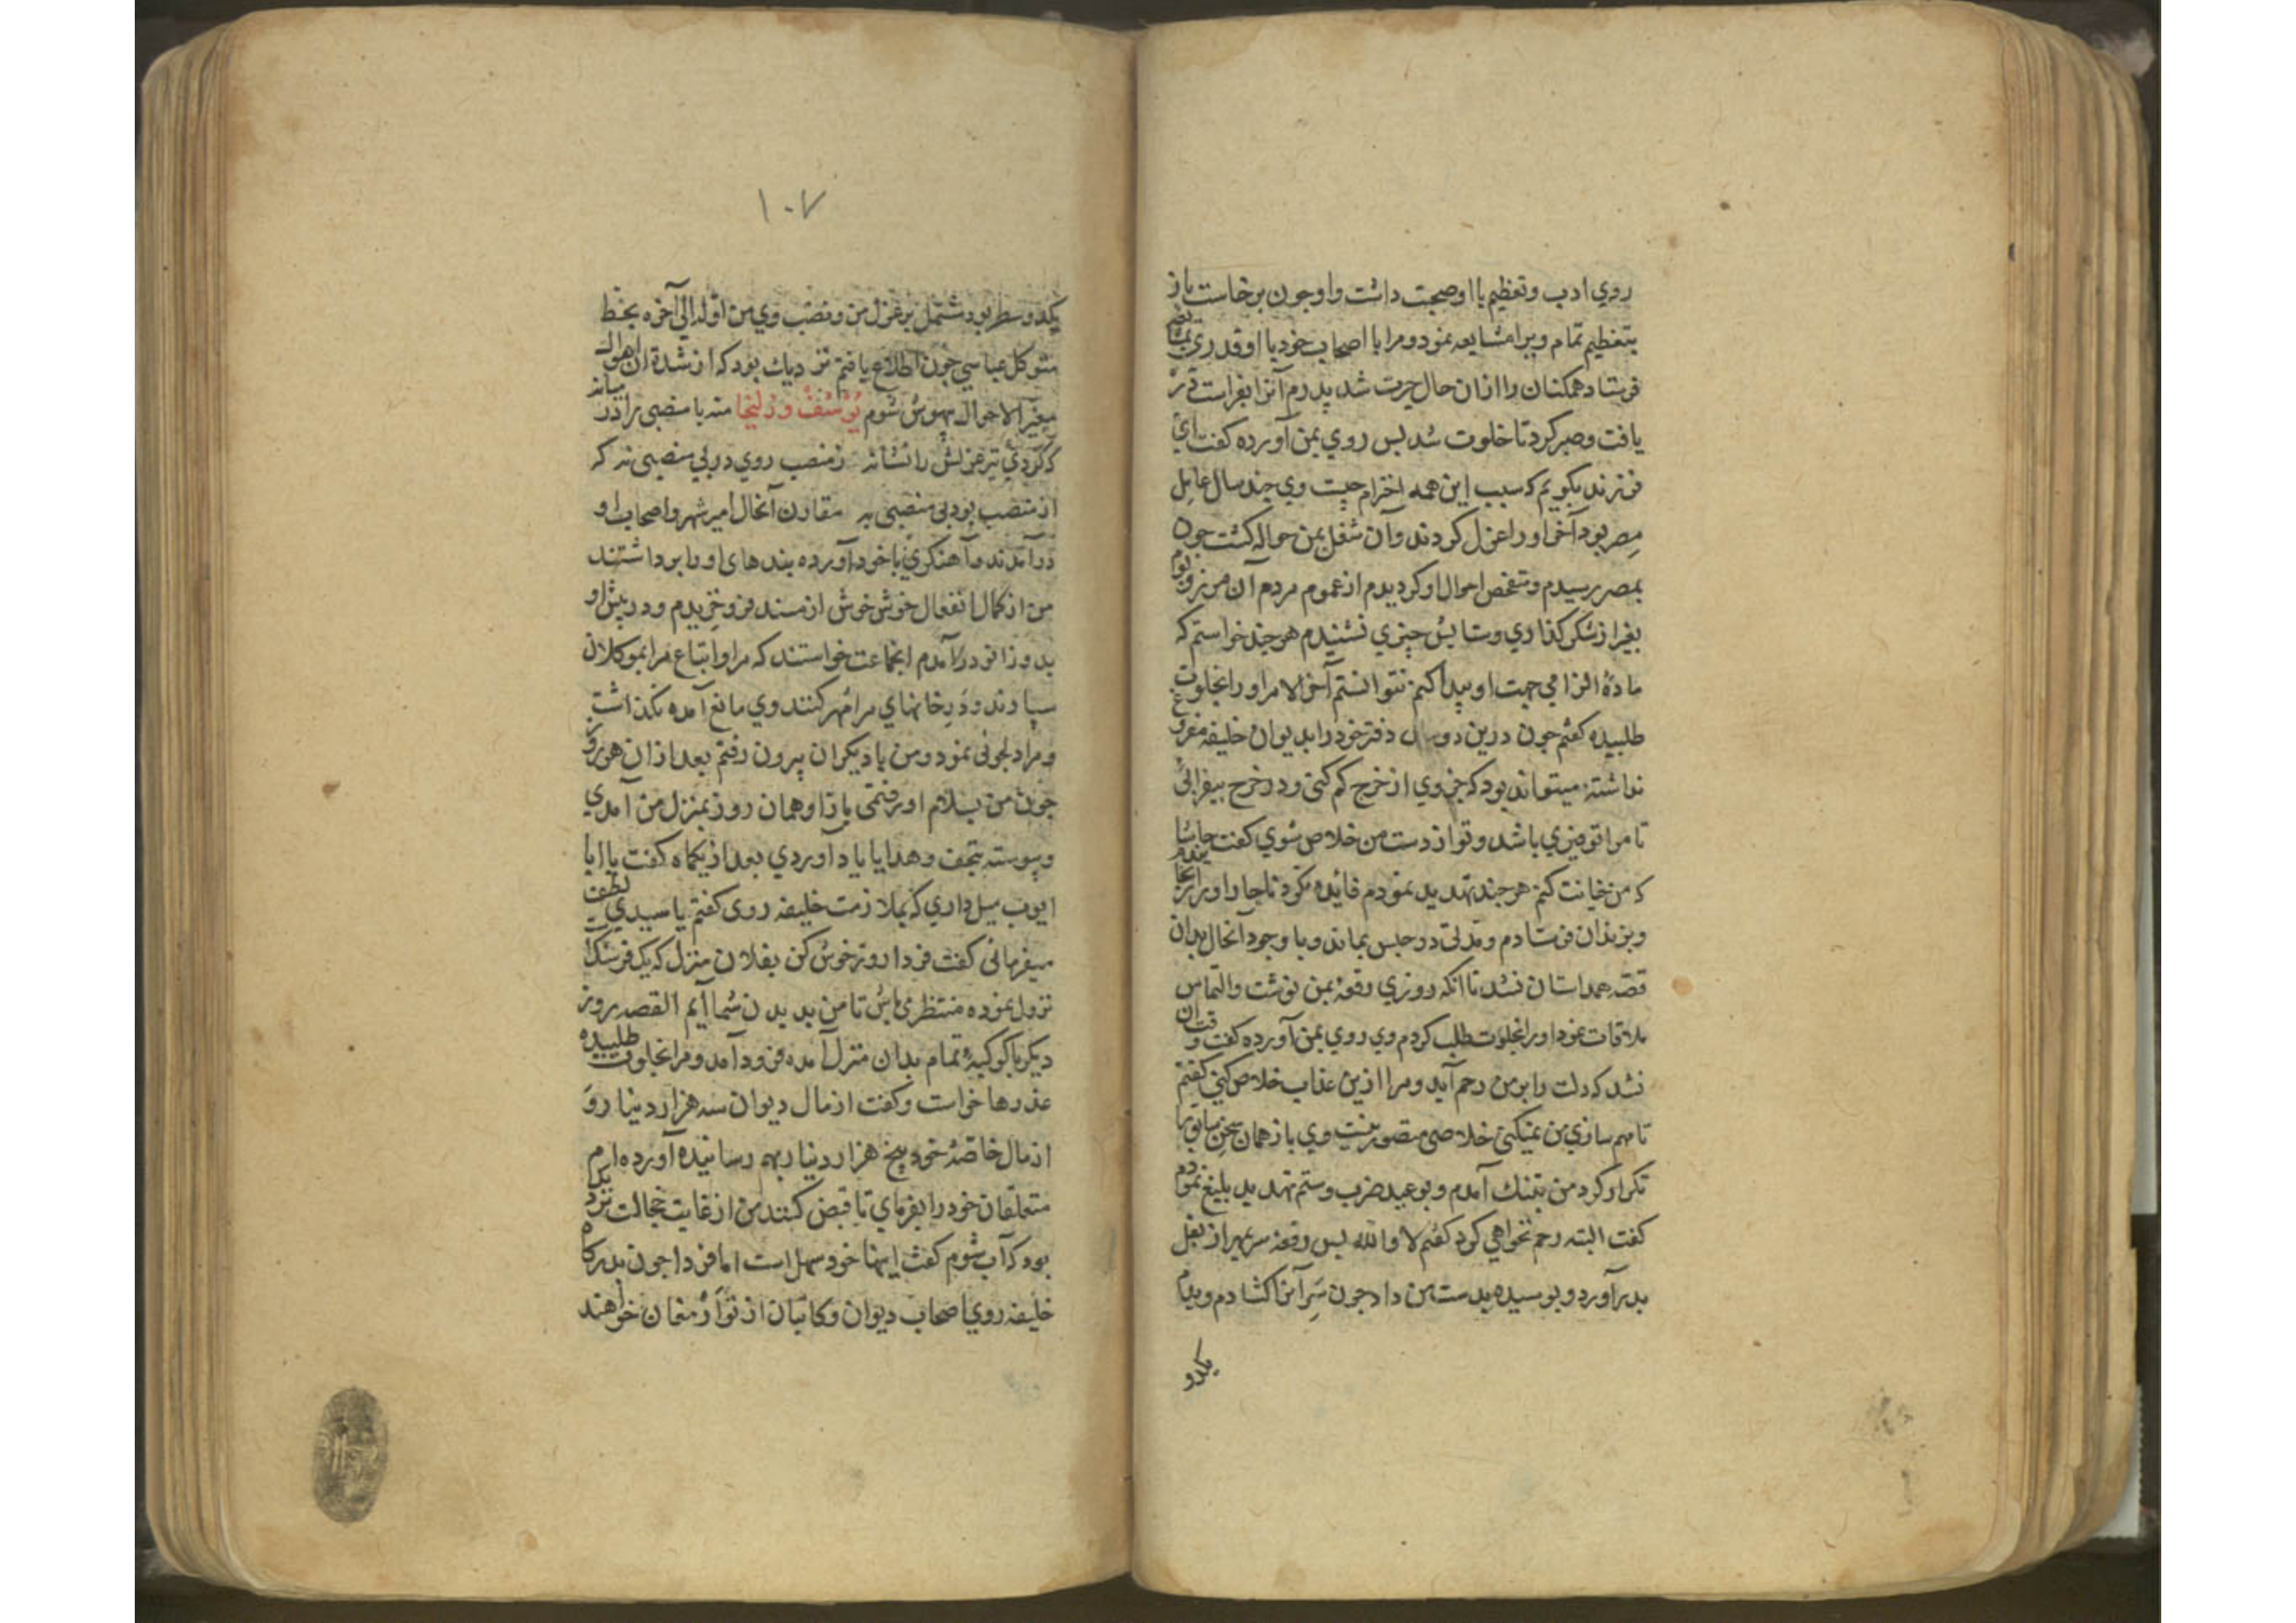 روي ادب وتعظيم با او صحبت داشت و او چون برخاست باز
بتعظيم تمام ويرا مشايعه نمود و مرا با اصحاب خود با او قدري
فرستاد همكنان را ازان حال حيرت شد پدرم آنرا بفراست در
يافت وصبر كرد تا خلوت شد پس روي بمن آورده كفت اي
فرزند بكويم كه سبب اين همه احترام چيست وي چند سال عامل
مصر بود آخر او را عزل كردند وآن شغل بمن حواله كشت چون
بمصر رسيدم ومتفحص احوال او كرديدم از عموم مردم آن مرز وبوم
بغير از شكر كذاري وستايش چيزي نشنيدم هر چند خواستم كه
مادۀ الزامي جهت او پيدا كنم نتوانستم آخر الامر او را بخلوت
طلبيده كفتم چون درين دو سال دفتر خود را بديوان خليفه
نداشته ميتواند بود كه جزوي از خرج كم كني ودر خرج بيفزائي
تا مرا توفيري باشد وتو از دست من خلاص شوي كفت حاشا
كه من خيانت كنم هر چند تهديد نمودم فائده نكرد ناچار او را
وبزندان فرستادم ومدتي در حبس بماند وبا وجود آنحال بدان
قصه همداستان نشد تا آنكه روزي رقعه بمن نوشت والتماس
ملاقات نمود او را بخلوت طلب كردم وي روي بمن آورده كفت وقت آن
نشد كه دلت را بر من رحم آيد ومرا ازين عذاب خلاص كني كفتم
تا مهم سازي من نميكني خلاصي متصور نيست وي باز همان سخن سابق را
تكرار كرد من بتنك آمدم و بوعيد ضرب وستم تهديد بليغ نمودم
كفت البته رحم نخواهي كرد كفتم لا والله پس رقعه سر بمهر از بغل
بدر آورد و بوسيده بدست من داد چون سر آنرا كشادم وديدم
يكدو
١٠٧
يكدو سطر بود مشتمل بر عزل من ونصب وي من اوله الي آخره بخط
متوكل عباسي چون اطلاع يافتم نزديك بود كه از شدة آن اهوال
متغير الاحوال بيهوش شوم يوسف وزليخا منه با منصبي برادر
كه كردي تير عزلش را نشانه ز منصب روي در بي منصبي نه كه
از منصب بود بي منصبي به مقارن آنحال امير شهر واصحاب او
درآمدند وآهنكري با خود آورده بندهاي او را برداشتند
من از كمال انفعال خوش خوش از مسند فرو خزيدم ودر پيش او
بدو زانو درآمدم انجماعت خواستند كه مرا واتباع مرا بموكلان
سپارند ودر خانهاي مرا مهر كنند وي مانع آمده نكذاشت
ومرا دلجوئي نمود ومن با ديكران بيرون رفتم بعد ازان هر روز
چون من بسلام او رفتمي باز او همان روز بمنزل من آمدي
وپيوسته بتحف وهدايا ياد آوردي بعد از يكماه كفت يا ابا
ايوب ميل داري كه بملازمت خليفه روي كفتم يا سيدي لطف
ميفرمائي كفت فردا روز خوش كن بفلان منزل كه يك فرسنك
نزول نموده منتظر مي باش تا من بديدن شما آيم القصه روز
ديكر با كوكبۀ تمام بدان منزل آمده فرود آمد ومرا بخلوت طلبيده
عذرها خواست وكفت از مال ديوان سه هزار دينار و
از مال خاصۀ خود پنج هزار دينار بهم رسانيده آورده ام
متعلقان خود را بفرماي تا قبض كنند من از غايت خجالت نزديك
بود كه آب شوم كفت اينها خود سهل است اما فردا چون بدركاه
خليفه روي اصحاب ديوان وكاتبان از تو ارمغان خواهند